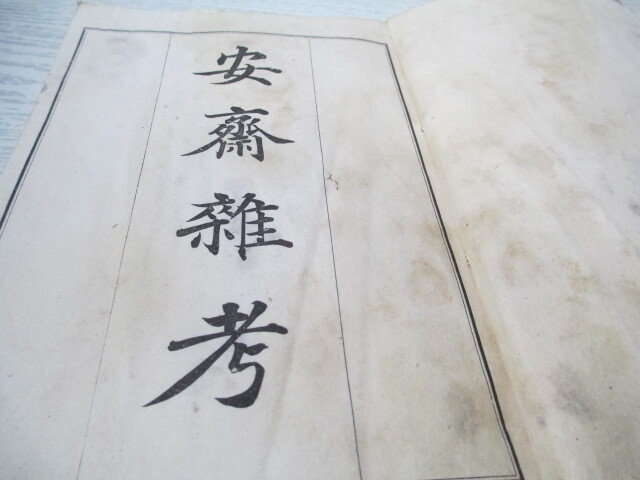 安齋雜考